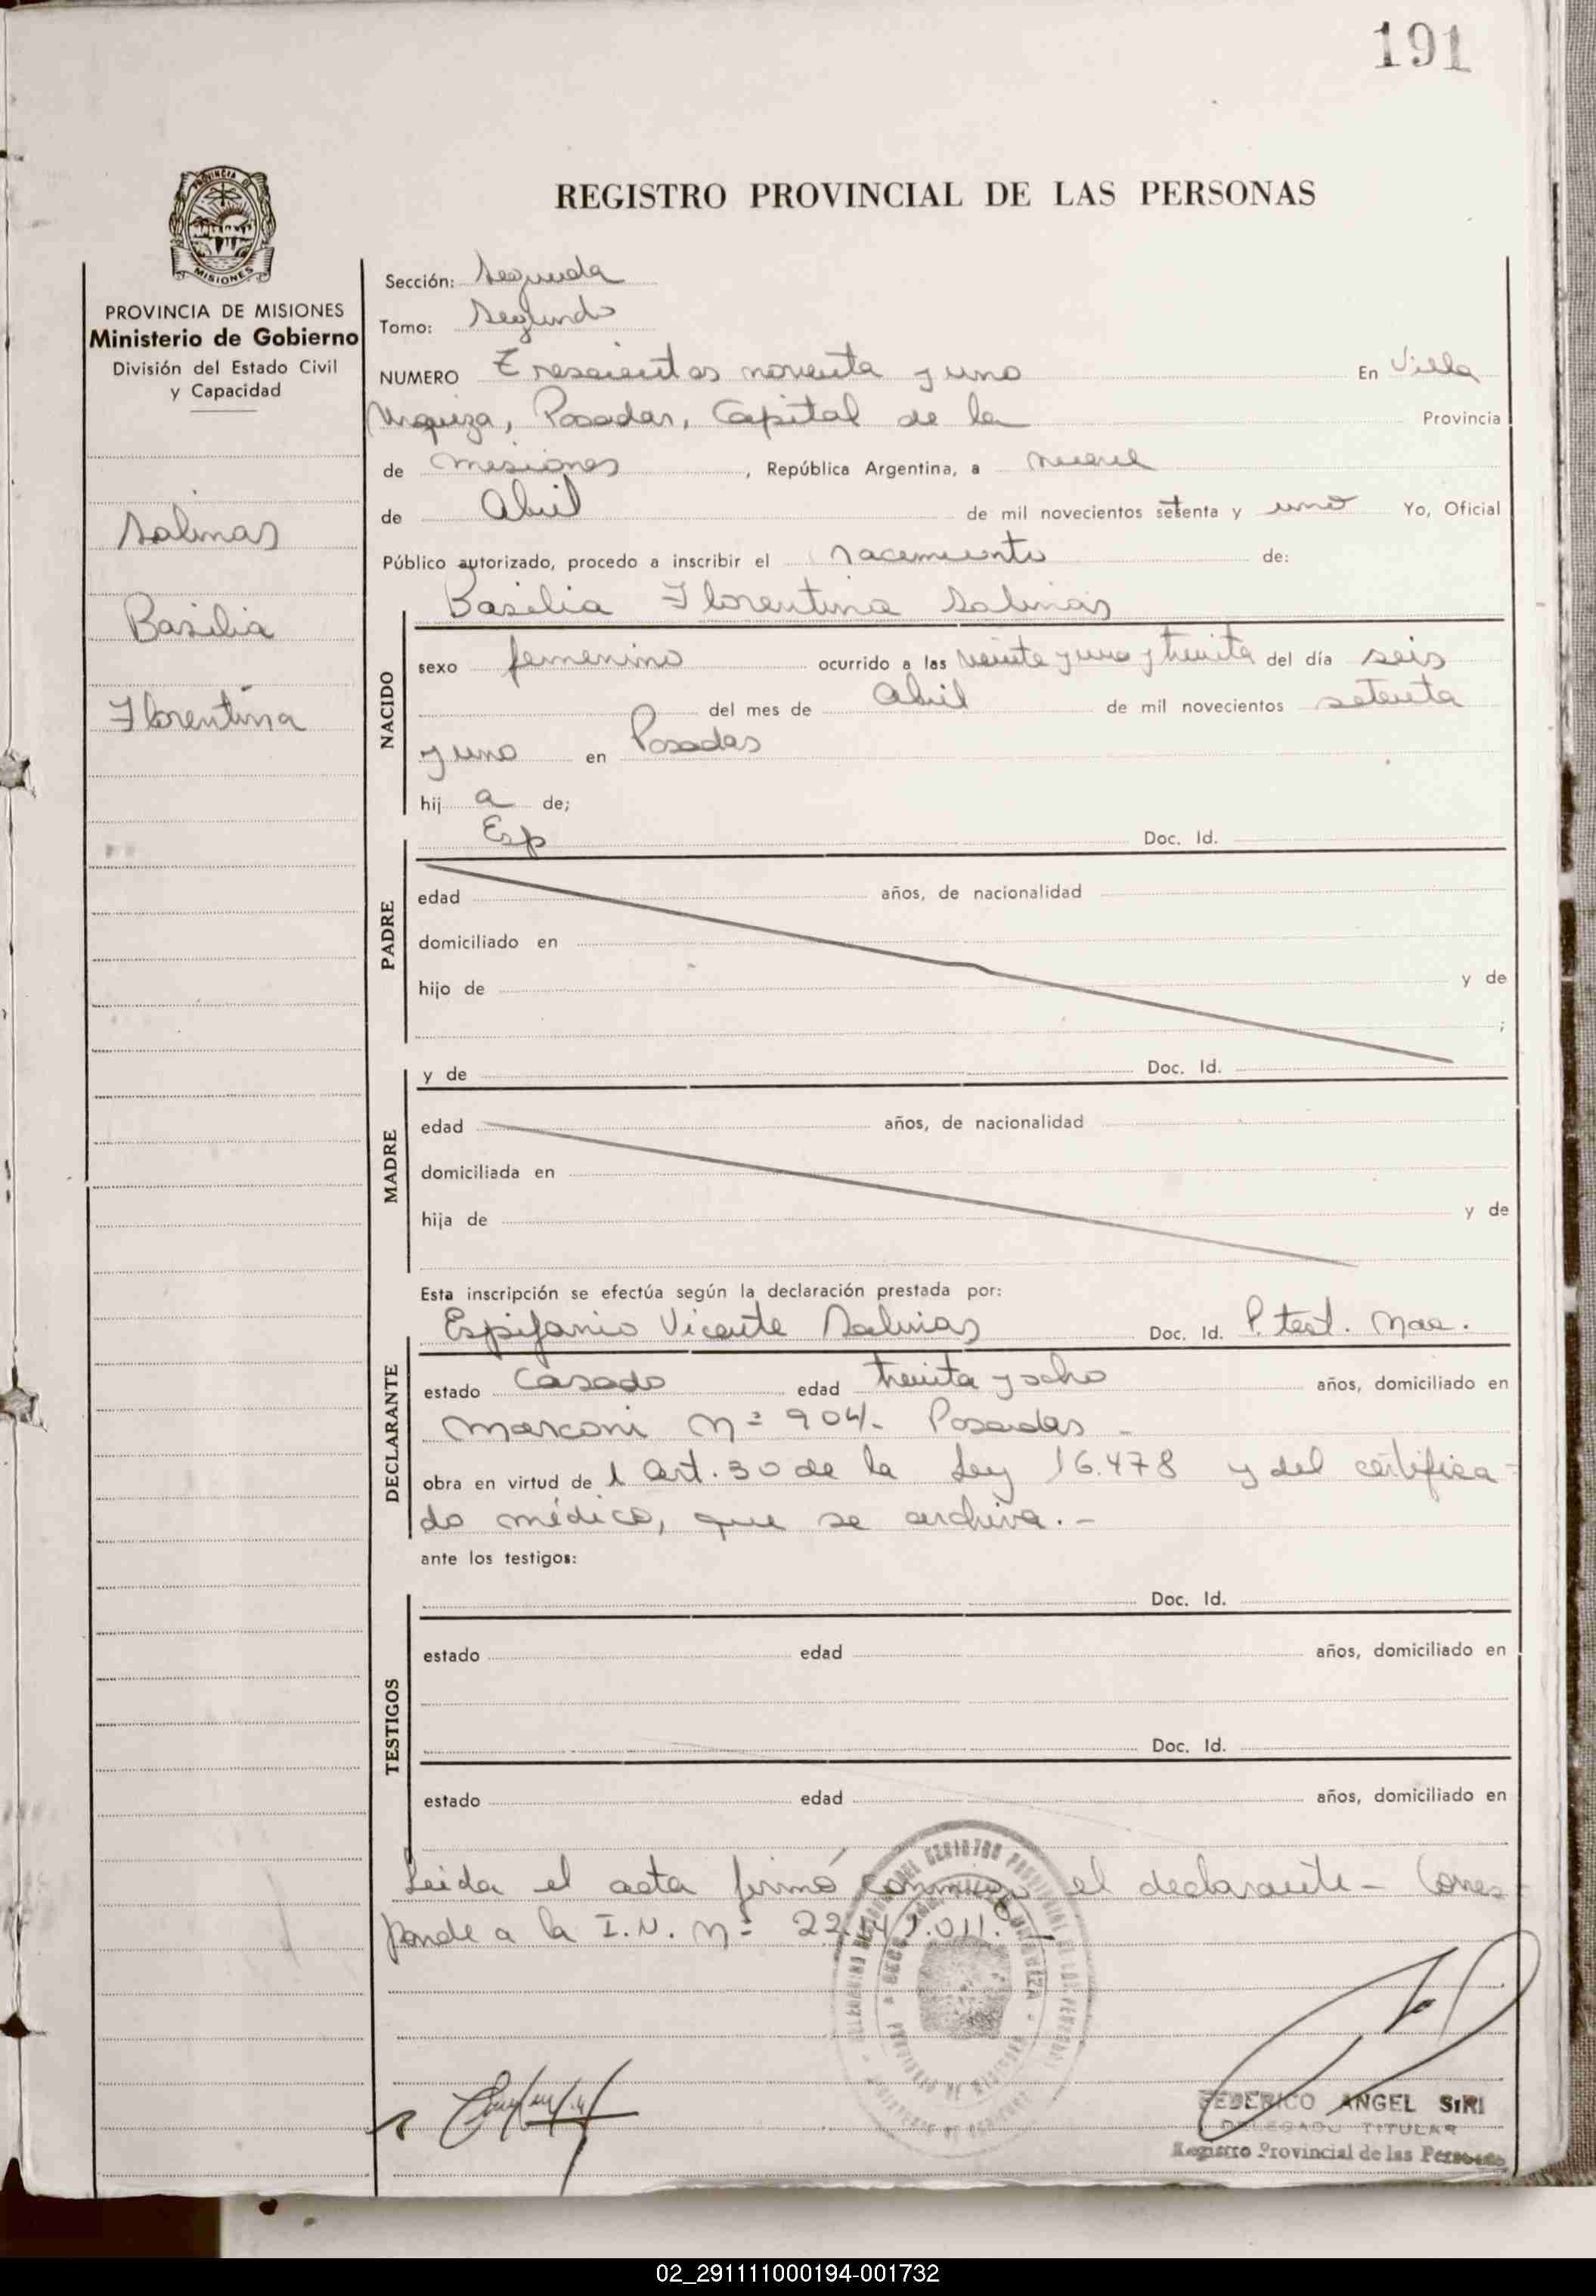 191
PROVINCIA DE
MISIONES
REGISTRO PROVINCIAL DE LAS PERSONAS
PROVINCIA DE MISIONES
Ministerio de Gobierno
División del Estado Civil
y Capacidad
Salinas
Basilia
Florentina
Sección: Segunda
Tomo: Segundo
NUMERO Trescientos noventa y uno En Villa
Urquiza, Posadas, Capital de la Provincia
de Misiones, República Argentina, a nueve
de Abril de mil novecientos setenta y uno Yo, Oficial
Público autorizado, procedo a inscribir el nacimiento de:
Basilia Florentina Salinas
NACIDO
sexo femenino ocurrido a las veinte y una y treinta del día seis
del mes de Abril de mil novecientos setenta
y uno en Posadas
hij a de;
Esp Doc. Id.
PADRE
edad años, de nacionalidad
domiciliado en
hijo de y de
;
y de Doc. Id.
MADRE
edad años, de nacionalidad
domiciliada en
hija de y de
Esta inscripción se efectúa según la declaración prestada por:
Espifanio Vicente Salinas Doc. Id. P. test. Mae.
DECLARANTE
estado Casado edad treinta y ocho años, domiciliado en
Marconi Nº 904. Posadas -
obra en virtud de l Art. 30 de la Ley 16.478 y del certifica-
do médico, que se archiva.-
ante los testigos:
Doc. Id.
TESTIGOS
estado edad años, domiciliado en
Doc. Id.
estado edad años, domiciliado en
Leida el acta firmó conmigo el declarante - Corres-
ponde a la I.N. Nº
FEDERICO ANGEL SIRI
DELEGADO TITULAR
Registro Provincial de las Personas
02_291111000194-001732